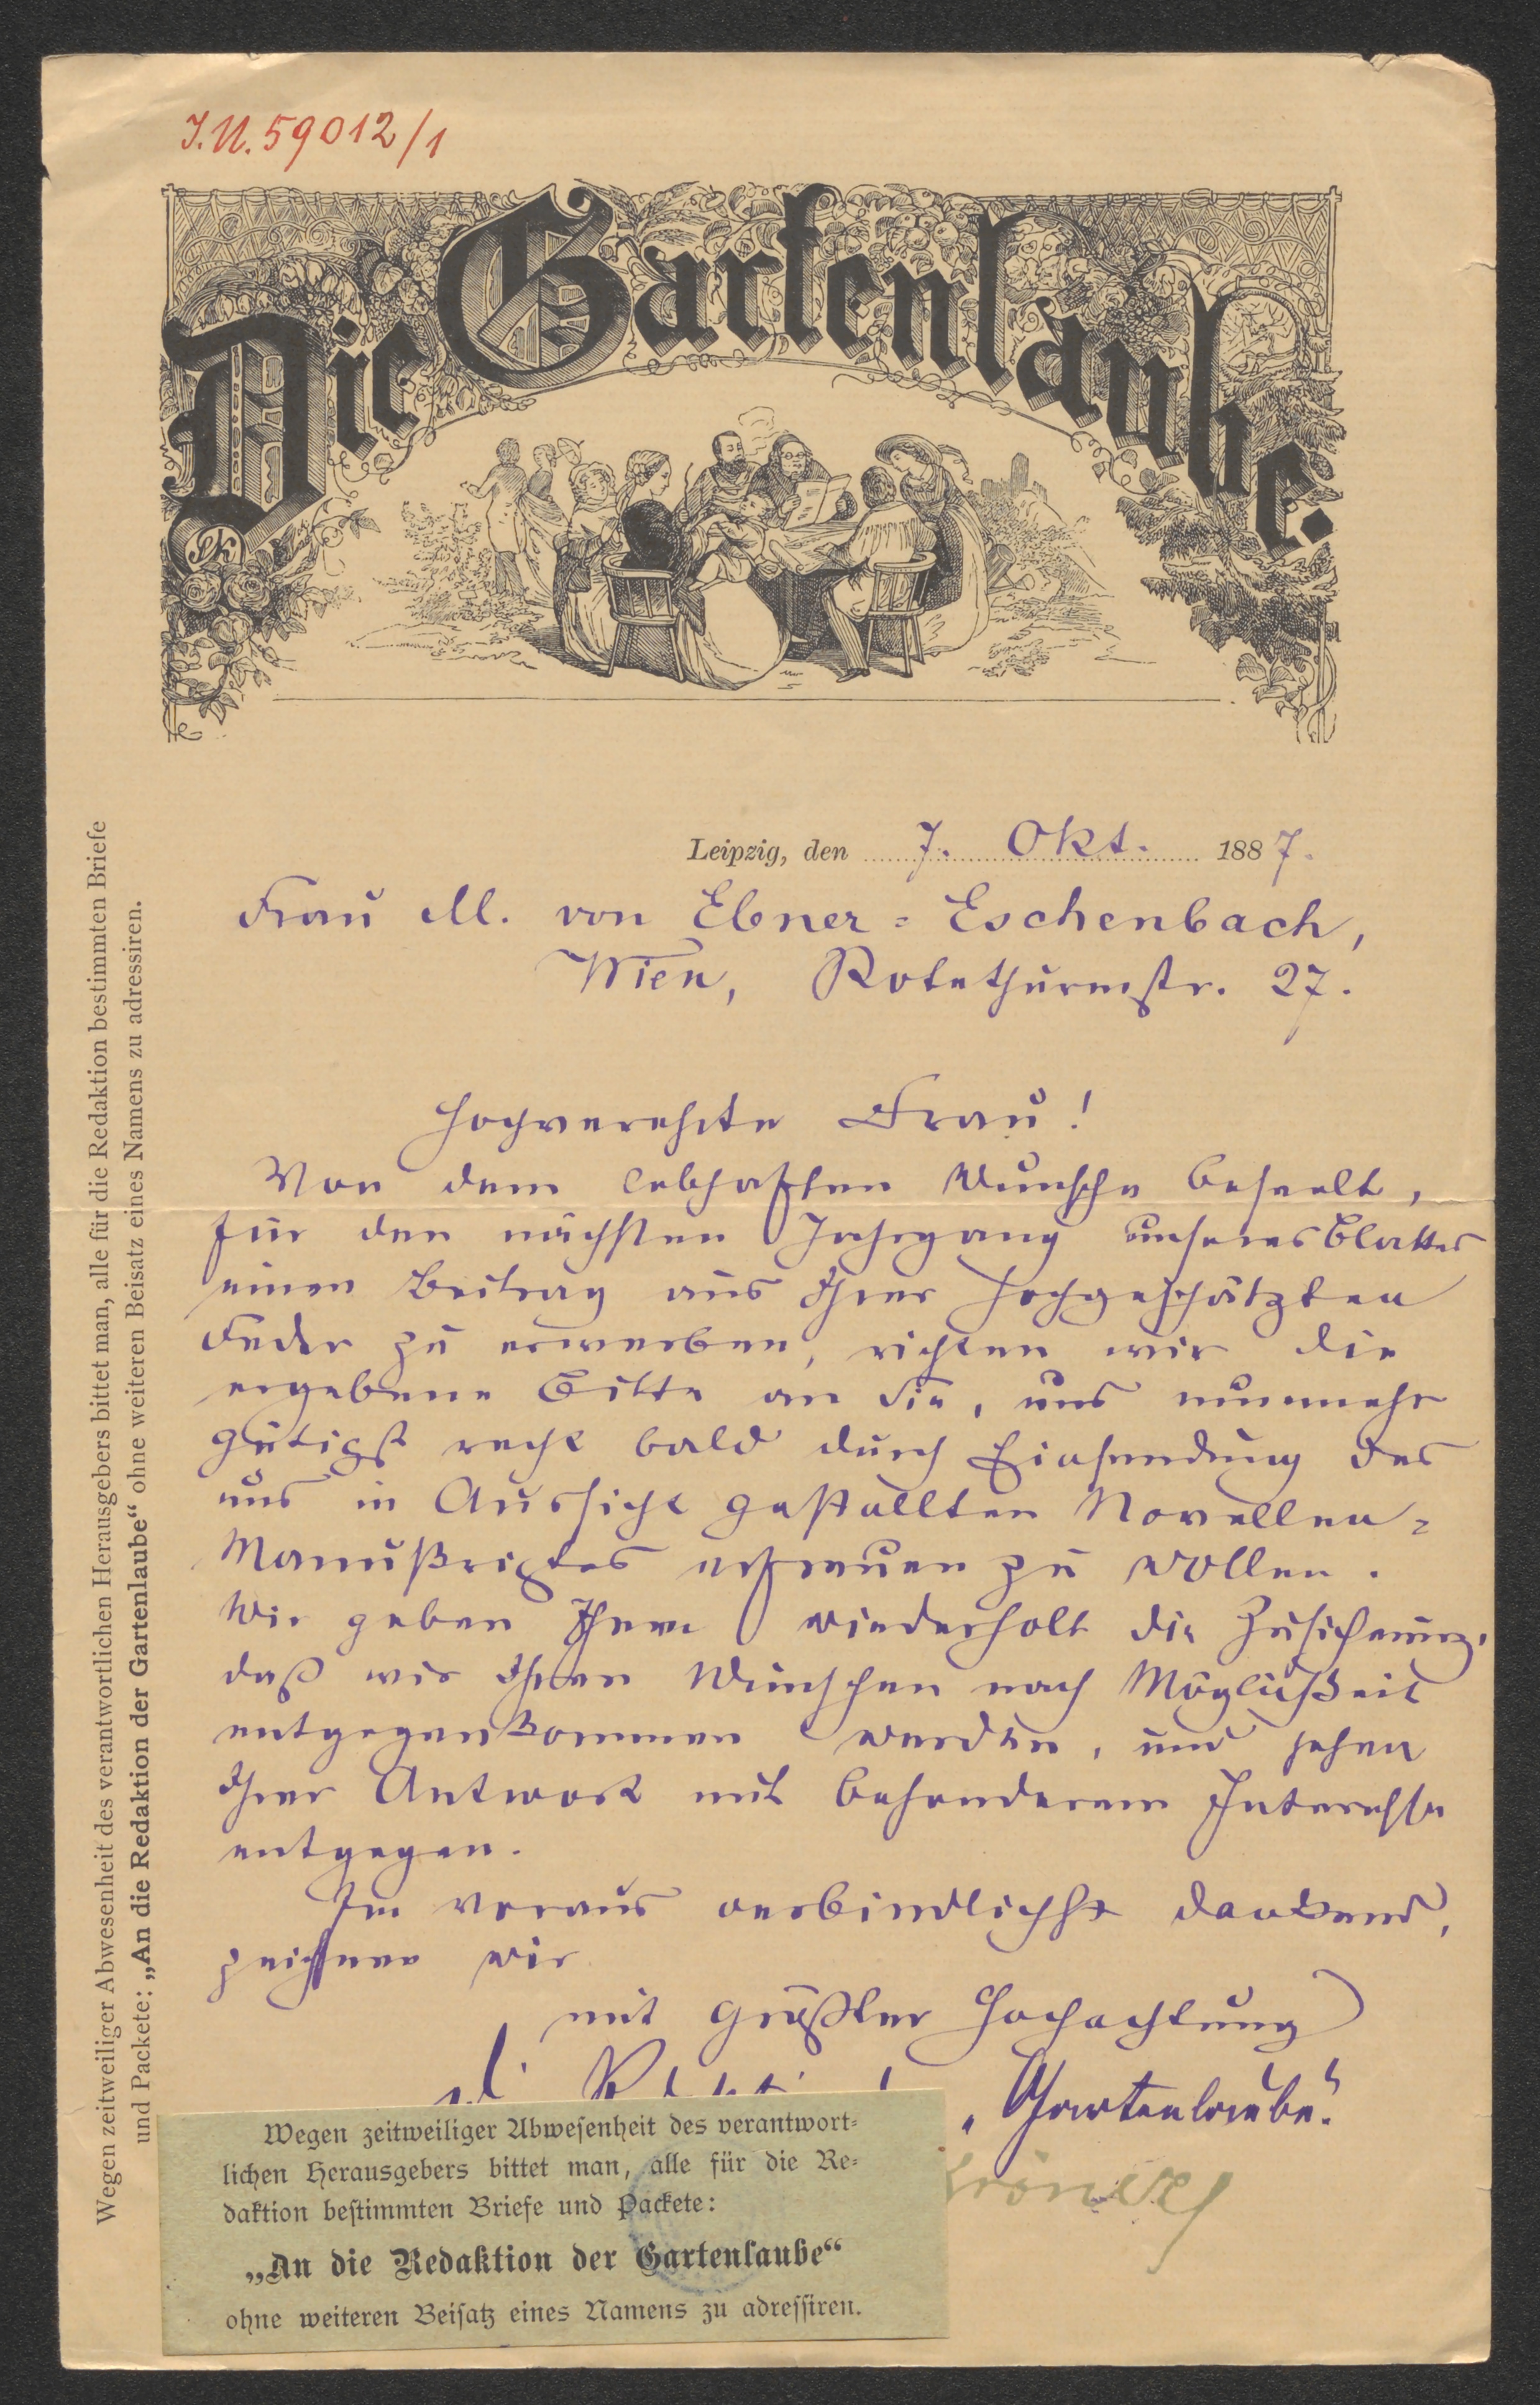 J.N. 59012/1
Die Gartenlaube.
Leipzig, den 7. Okt. 1887.
Frau M. von Ebner-Eschenbach,
Wien, Rotethurmstr. 27.
Hochverehrte Frau!
Von dem lebhaften Wunsche beseelt,
für den nächsten Jahrgang unseres Blattes
einen Beitrag aus Ihrer hochgeschätzten
Feder zu erwerben, richten wir die
ergebene Bitte an Sie, uns nunmehr
gütigst recht bald durch Einsendung des
uns in Aussicht gestellten Novellen-
Manuskriptes erfreuen zu wollen.
Wir geben Ihnen wiederholt die Zusicherung,
daß wir Ihren Wünschen nach Möglichkeit
entgegenkommen werden, und sehen
Ihrer Antwort mit besonderem Interesse
entgegen.
Im voraus verbindlichst dankend,
zeichnen wir
mit größter Hochachtung
die Redaktion der „Gartenlaube“.
Kröner
Wegen zeitweiliger Abwesenheit des verantwort-
lichen Herausgebers bittet man, alle für die Re-
daktion bestimmten Briefe und Packete:
„An die Redaktion der Gartenlaube“
ohne weiteren Beisatz eines Namens zu adressiren.
Wegen zeitweiliger Abwesenheit des verantwortlichen Herausgebers bittet man, alle für die Redaktion bestimmten Briefe
und Packete: „An die Redaktion der Gartenlaube“ ohne weiteren Beisatz eines Namens zu adressiren.